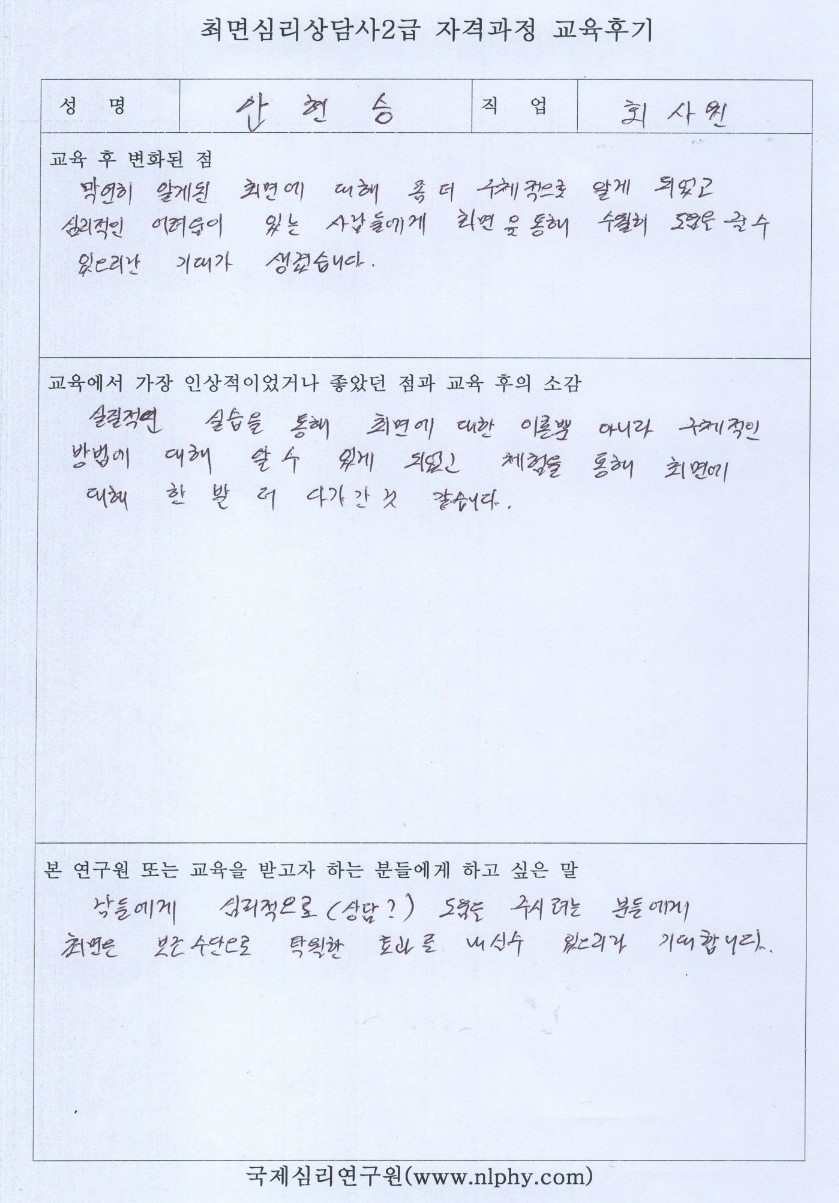 최면심리상담사2급 자격과정 교육후기
성 명 안 현 승 직 업 회 사 원
교육 후 변화된 점
막연히 알게된 최면에 대해 좀 더 구체적으로 알게 되었고
심리적인 어려움이 있는 사람들에게 최면을 통해 수월히 도움을 줄 수
있으리란 기대가 생겼습니다.
교육에서 가장 인상적이었거나 좋았던 점과 교육 후의 소감
실질적인 실습을 통해 최면에 대한 이론뿐 아니라 구체적인
방법에 대해 알 수 있게 되었고 체험을 통해 최면에
대해 한 발 더 다가간 것 같습니다.
본 연구원 또는 교육을 받고자 하는 분들에게 하고 싶은 말
남들에게 심리적으로 (상담?) 도움을 주시려는 분들에게
최면은 수단으로 탁월한 효과를 내실수 있으리라 기대합니다.
국제심리연구원(www.nlphy.com)